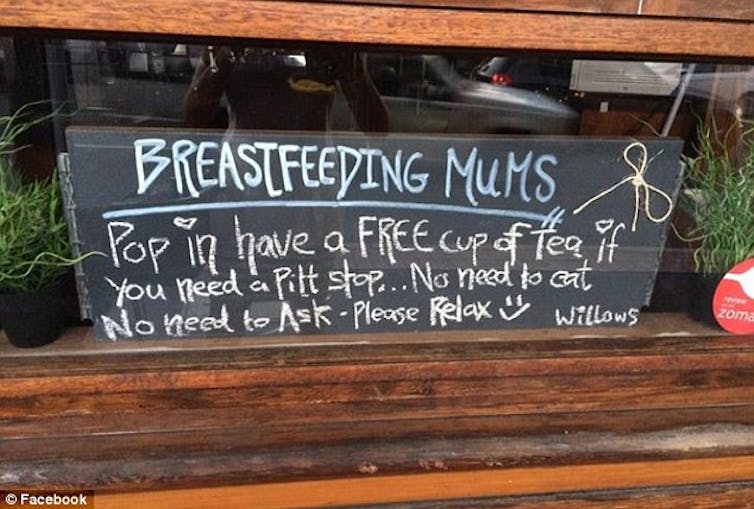 BREASTFEEDING MUMS
Pop in have a FREE cup of Tea if
you need a Pitt stop... No need to eat
No need to Ask - Please Relax
Willows
review
zoma
© Facebook